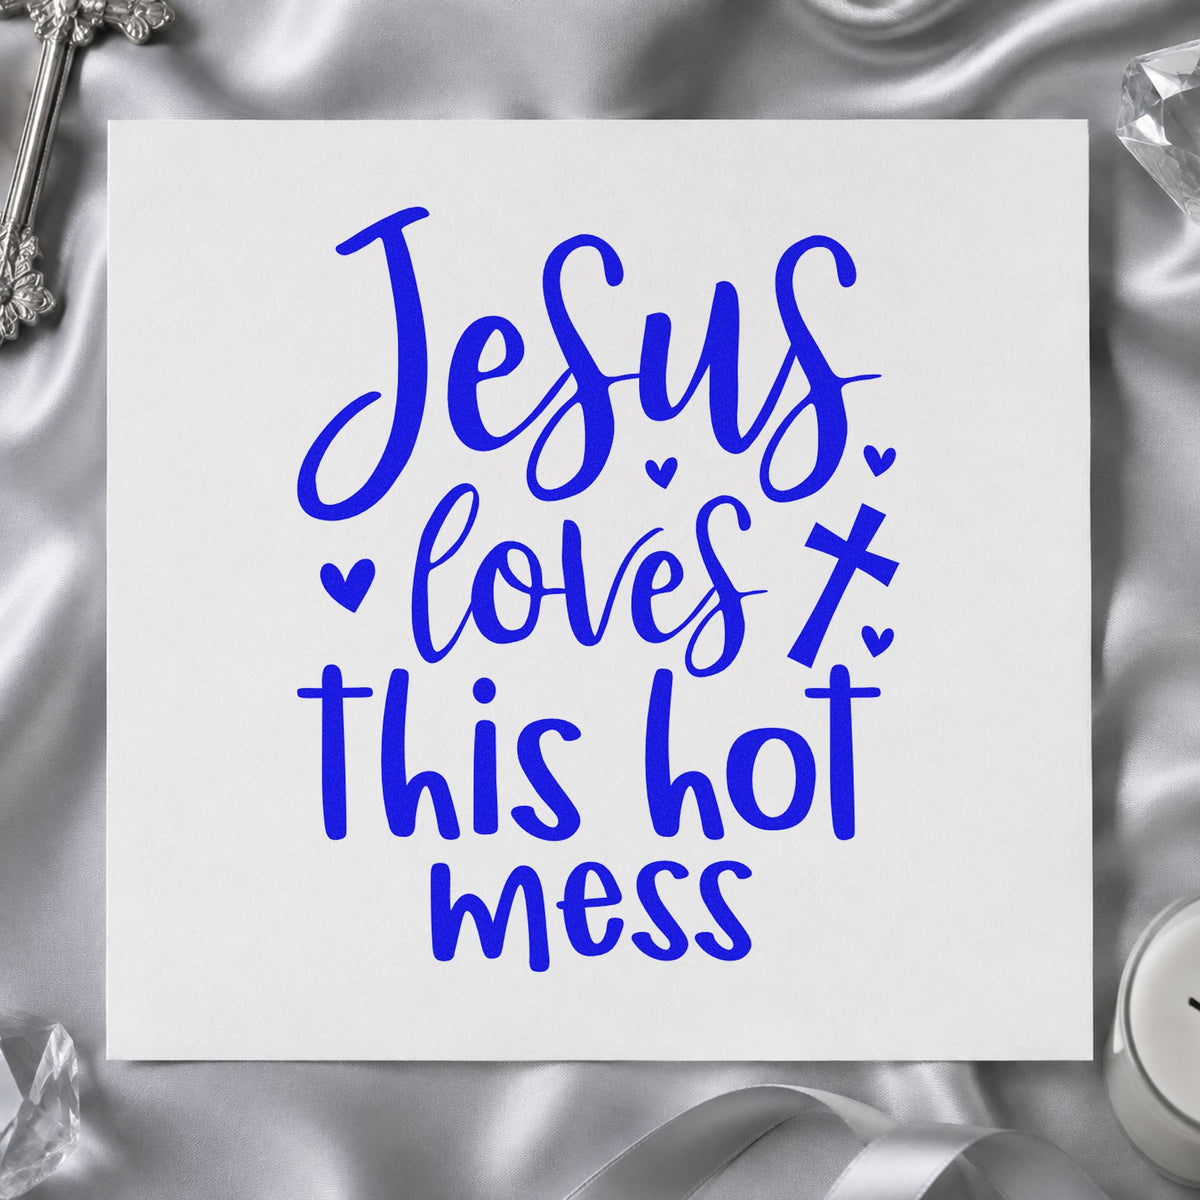 Jesus
loves
this hot
mess